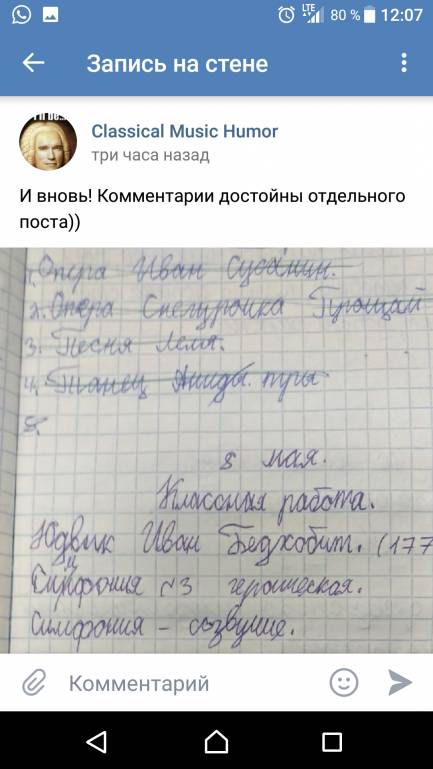 LTE 80 % 12:07
Запись на стене
Classical Music Humor
три часа назад
И вновь! Комментарии достойны отдельного
поста))
1. Опера Иван Сусанин.
2. Опера Снегурочка Прощай
3. Песня Леля.
4. Танец
5.
8 мая.
Классная работа.
Юдвик Иван Бедховит. (177
Симфония №3 героическая.
Симфония – созвучие.
Комментарий